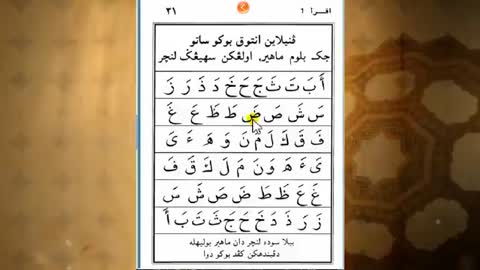 اقـرأ 1 ٣١
ڤنيلاين انتوق بوكو ساتو
جک بلوم ماهير، اولڠکن سهيڠݢ لنچر
أَ بَ تَ ثَ جَ حَ خَ دَ ذَ رَ زَ
سَ شَ صَ ضَ طَ ظَ عَ غَ
فَ قَ كَ لَ مَ نَ وَ هَ ءَ ىَ
ىَ ءَ هَ وَ نَ مَ لَ كَ قَ فَ
غَ عَ ظَ طَ ضَ صَ شَ سَ
زَ رَ ذَ دَ خَ حَ جَ ثَ تَ بَ أَ
ببلا سوده لنچر دان ماهير بوليهله
دڤيندهكن كڤد بوكو دوا